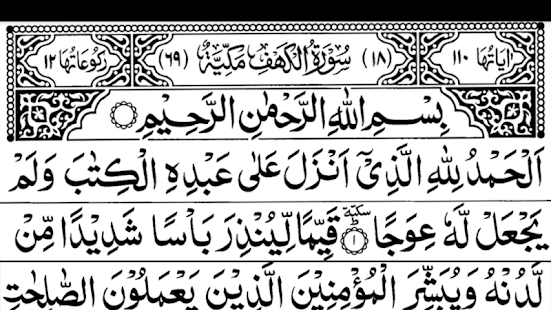 اٰيَاتُهَا ١١٠ (١٨) سُوْرَةُ الْكَهْفِ مَكِّيَّةٌ (٦٩) رُكُوْعَاتُهَا ١٢
بِسْمِ اللّٰهِ الرَّحْمٰنِ الرَّحِيْمِ
اَلْحَمْدُ لِلّٰهِ الَّذِيْٓ اَنْزَلَ عَلٰى عَبْدِهِ الْكِتٰبَ وَلَمْ
يَجْعَلْ لَّهٗ عِوَجًا ۜ ١ قَيِّمًا لِّيُنْذِرَ بَاْسًا شَدِيْدًا مِّنْ
لَّدُنْهُ وَيُبَشِّرَ الْمُؤْمِنِيْنَ الَّذِيْنَ يَعْمَلُوْنَ الصّٰلِحٰتِ